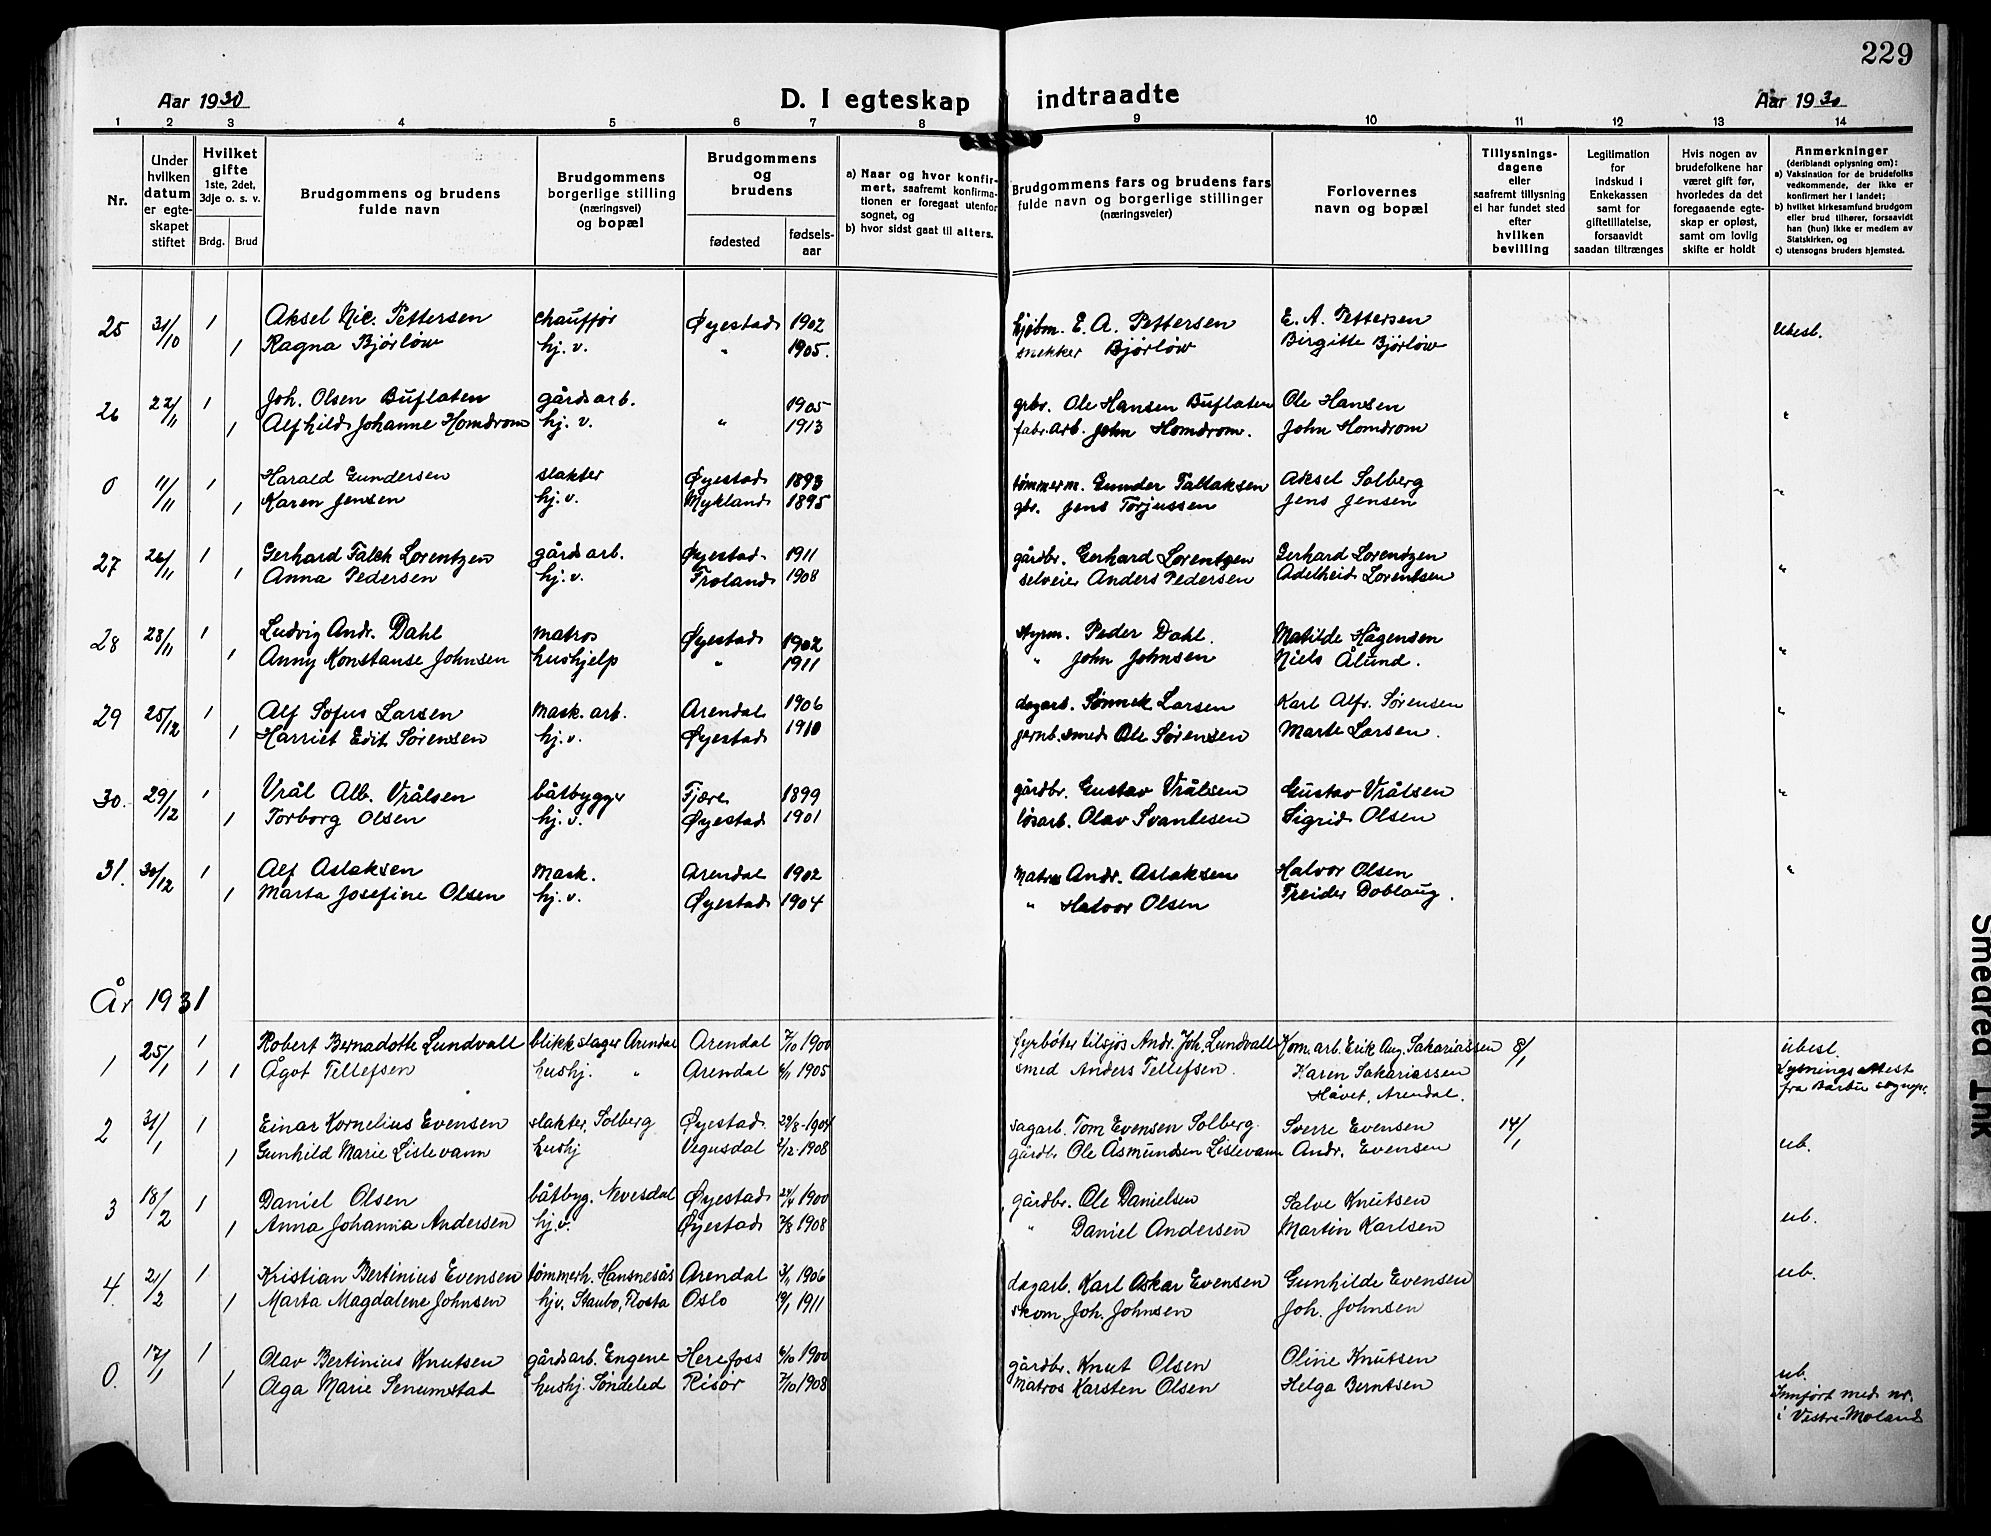 229
Aar 1930 D. I egteskap indtraadte Aar 1930
1 2 3 4 5 6 7 8 9 10 11 12 13 14
Nr.
Under hvilken datum er egteskapet stiftet
Hvilket gifte 1ste, 2det, 3dje o. s. v.
Brdg. Brud
Brudgommens og brudens fulde navn
Brudgommens borgerlige stilling (næringsvei) og bopæl
Brudgommens og brudens
fødested fødselsaar
a) Naar og hvor konfirmert, saafremt konfirmationen er foregaat utenfor sognet, og
b) hvor sidst gaat til alters.
Brudgommens fars og brudens fars fulde navn og borgerlige stillinger (næringsveier)
Forlovernes navn og bopæl
Tillysningsdagene eller saafremt tillysning ei har fundet sted efter hvilken bevilling
Legitimation for indskud i Enkekassen samt for giftetillatelse, forsaavidt saadan tiltrænges
Hvis nogen av brudefolkene har været gift før, hvorledes da det foregaaende egteskap er opløst, samt om lovlig skifte er holdt
Anmerkninger (deriblandt oplysning om):
a) Vaksination for de brudefolks vedkommende, der ikke er konfirmert her i landet;
b) hvilket kirkesamfund brudgom eller brud tilhører, forsaavidt han (hun) ikke er medlem av Statskirken, og
c) utensogns bruders hjemsted.
25 31/10 1 Aksel Nic. Pettersen chauffør Øyestad 1902 kjøbm. E. A. Pettersen E. A. Pettersen ubesl.
1 Ragna Bjørløw hj. v. " 1905. snekker Bjørløw Birgitte Bjørløw
26 22/11 1 Joh. Olsen Buflaten gårdsarb. 1905 grbr. Ole Hansen Buflaten Ole Hansen "
1 Alfhild Johanne Homdrom hj. v. " 1913 fabr. arb. John Homdrom. John Homdrom
0 11/11 1 Harald Gundersen slakter Øyestad 1893 tømmerm. Gunder Tallaksen Aksel Solberg "
1 Karen Jensen hj. v. Mykland 1895 gbr. Jens Torjussen Jens Jensen
27 26/11 1 Gerhard Falck Lorentzen gårdsarb. Øyestad 1911 gårdbr. Gerhard Lorentzen Gerhard Lorendzen "
1 Anna Pedersen hj. v. Froland 1908 selveier Anders Pedersen Adelheid Lorentsen
28 28/11 1 Ludvig Andr. Dahl matros Øyestad 1902 styrm. Peder Dahl. Matilde Hågensen "
1 Anny Konstanse Johnsen hushjelp " 1911 " John Johnsen Niels Ålund.
29 25/12 1 Alf Sofus Larsen mask. arb. Arendal 1906 dagarb. Sønnek Larsen Karl Alfr. Sørensen "
1 Harriet Edit Sørensen hj. v. Øyestad 1910 jernb. smed Ole Sørensen Marte Larsen.
30. 29/12 1 Vrål Alb. Vrålsen båtbygger Fjære 1899 gårdbr. Gustav Vrålsen Gustav Vrålsen "
1 Torborg Olsen hj. v. Øyestad 1901 løsarb. Olav Svantesen Sigrid Olsen
31. 30/12 1 Alf Aslaksen mask. Arendal 1902 Matros Andr. Aslaksen Halvor Olsen "
1 Marta Josefine Olsen hj. v. Øyestad 1904 " Halvor Olsen Freider Doblaug.
År 1931
1 25/1 1 Robert Bernadotte Lundvall blikkslager Arendal Arendal 7/10 1900 fyrbøter tilsjøs Andr. Joh. Lundvall Kom. arb. Erik Aug. Sakariassen 8/1 ubesl.
1 1 Ågot Tellefsen hushj. " Arendal 1905 smed Anders Tellefsen. Karen Sakariassen Lysningsattest
Håvet, Arendal. fra Barbu sognepr.
2 31/1 1 Einar Kornelius Evensen slakter, Solberg Øyestad 29/8-1904 sagarb. Tom Evensen Solberg. Sverre Evensen 14/1 ub.
1 Gunhild Marie Lislevann hushj Vegusdal 2/12-1908 gårdbr Ole Åsmundsen Lislevann Andr. Evensen
3 18/2 1 Daniel Olsen båtbyg. Nevesdal Øyestad 24/4 1900 gårdbr. Ole Danielsen Salve Knutsen ub.
1 Anna Johanna Andersen hj.v. Øyestad 7/8 1908 " Daniel Andersen Martin Karlsen
4. 21/2 1 Kristian Bertinius Evensen tømmerh. Hansnesås Arendal 3/11 1906 dagarb. Karl Oskar Evensen Gunhilde Evensen ub.
1 Marta Magdalene Johnsen hjv. Staubo, Flosta Oslo 1911 skom. Joh. Johnsen Joh. Johnsen
0. 17/1 1 Olav Bertinius Knutsen gårdsarb. Engene Herefoss 6/10 1900 gårdbr. Knut Olsen Oline Knutsen ub.
1 Olga Marie Senumstad hushj. Søndeled Risør 7/10 1908 Matros Karsten Olsen Helga Berntsen Innført med nr.
i Vestre-Moland
Smeared Ink